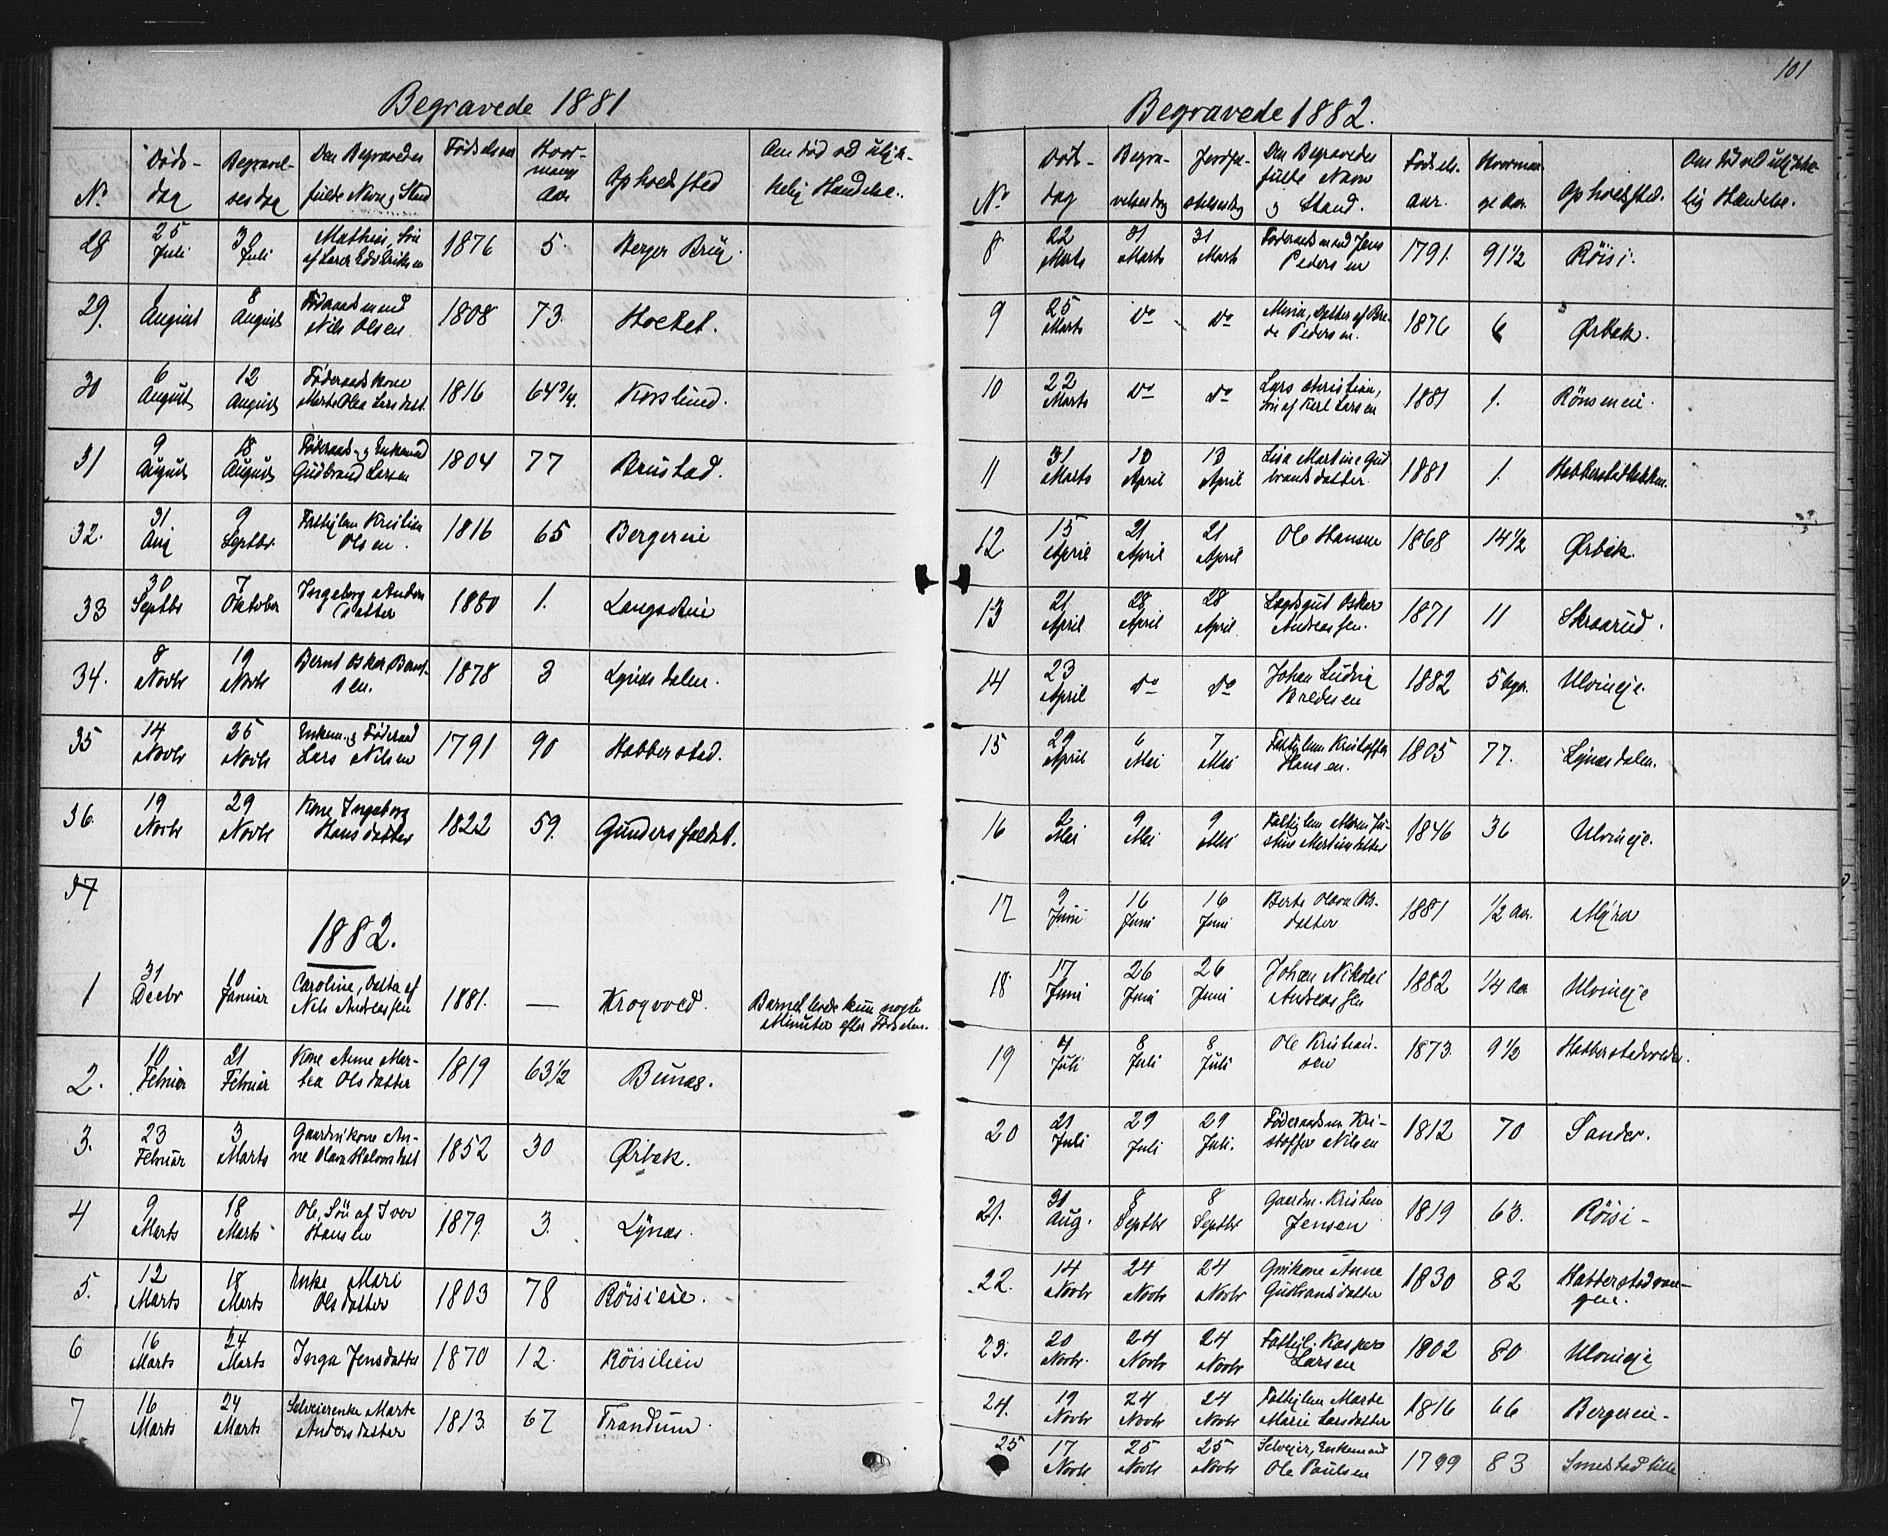 Begravede 1881
No Døds- dag Begravel- sesdag Den Begravedes fulde Navn, Stand Fødselsaar Hvor- mange Aar Opholdssted Om død ved ulyk- kelig Hændelse.
28 25 Juli 30 Juli Mathias, Søn af Lars Edv. Eriksen 1876 5. Berger Brug.
29. 1 August 8 August Føderaadsmand Nils Olsen 1808 73.
30 6 August 12 August Føderaadskone Marte Olea Larsdatt. 1816 64 3/4. Korslund.
31 9 August 18 August Føderaads- og Enkemand Gudbrand Larsen 1804 77 Brustad.
32. 31 Aug 9 Septbr. Fattiglem Kristian Olsen. 1816 65 Bergereie
33 30 Septbr 7 Oktober Ingeborg Anders Datter 1880 1.
34. 8 Novbr 19 Novbr Bernt Oskar Bernt- sen. 1878 3 Lynæsdalen.
35 14 Novbr 25 Novbr Enkem. og Føderaad Lars Nilsen 1791 90 Habberstad.
36. 19 Novbr 29 Novbr Kone Ingeborg Hansdatter 1822 59. Gundersfeldet.
37
1882.
1 31 Decbr 10 Januar Caroline, Datter af Nils Andreassen 1881. — Krogvold. Barnet levde kun nogle Minuter efter Fødselen.
2. 10 Februar 21 Februar Kone Anne Mar- tea Olsdatter 1819 63 1/2 Bunæs.
3. 23 Februar 3 Marts Gaardmkone An- ne Olava Halvorsdatt 1852 30 Ørbæk.
4 9 Marts 18 Marts Ole, Søn af Iver Hansen 1879. 3. Lynæs.
5. 12 Marts 18 Marts Enke Mari Olsdatter 1803 78 Røisieie.
6 16 Marts 24 Marts Inga Jensdatter 1870 12. Røisilien
7 16 Marts 24 Marts Selveierenke Marte Andersdatter 1813. 67 Trandum.
101
Begravede 1882.
No Døds- dag Begra- velsesdag Jordpa- stelsesdag Den Begravedes fulde Navn og Stand. Fødsels- aar. Hvorman- ge Aar. Opholdssted. Om død ved ulykke- lig Hændelse.
8 22 Marts 31 Marts 31 Marts Føderaadsmand Jens Pedersen 1791. 91 1/2 Røisi.
9 25 Marts Do Do Maria, Datter af Bre- de Pedersen. 1876 6 Ørbæk.
10 22 Marts Do Do Lars Christian, Søn af Karl Larsen 1881 1. Rønseneie.
11 31 Marts 13 April 13 April Lisa Martine Gud brandsdatter 1881 1.
12 15 April 21 April 21 April Ole Hansen 1868 14 1/2 Ørbæk.
13 21 April 28 April 28 April Lægdsgut Oskar Andreassen. 1871 11 Skraarud.
14 23 April Do Do Johan Ludvig Bredesen 1882 5 Ugr. Ulvineje.
15 29 April 6 Mai 7 Mai Fattiglem Kristoffer Hansen. 1805 77. Lynæsdalen.
16 2 Mai 9 Mai 9 Mai Fattiglem Maren Ju- stine Martinsdatter 1846 36 Ulvineje.
17 9 Juni 16 Juni 16 Juni Berte Olava Ols- datter 1881 1/2 Aar. Myhra
18 17 Juni 26 Juni 26 Juni Johan Nikolai Andreassen 1882 1/4 Aar Ulvineje
19 4 Juli 8 Juli 8 Juli Ole Kristian- sen 1873. 9 1/2
20 21 Juli 29 Juli 29 Juli. Føderaadsm. Kri- stoffer Nilsen 1812 70 Sander.
21. 31 Aug. 8 Septbr 8 Septbr Gaardm. Kristen Jensen 1819 63. Røisi-
22. 14 Novbr 24 Novbr 24 Novbr Anne Gudbrandsdatter 1830 82 Habberstadvan- gen.
23. 20 Novbr. 24 Novbr 24 Novbr Fattigl. Kasper Larsen 1802 80 Ulvineje
24. 19 Novbr 24 Novbr 24 Novbr Fattiglem Marte Marie Larsdatter 1816 66 Bergereie-
25 17 Novbr 25 Novbr 25 Novbr Selveier, Enkemand Ole Paulsen 1799 83 Smestad lille